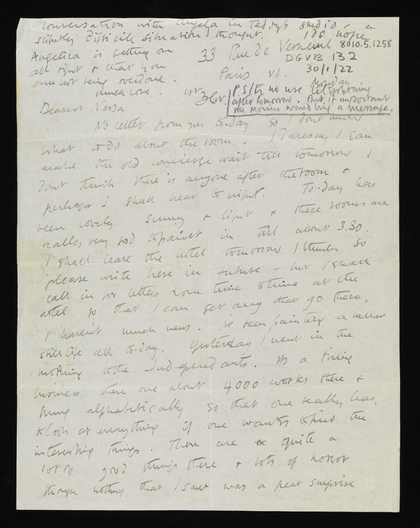 conversation with Angela in Tedi's studio in a
difficult situation I thought. I do hope
Angelica is getting on 33 Rue de Verneuil 8010.5.1258
all right & that you Paris VI. DGVB 132
are not being overdone. 30/1/22
much love. Monday
yr D.G. P.S. It's no use telephoning
after tomorrow. But, if important
the Mourin would bring a message.
Dearest Nessa
No letter from you to-day so I don't know
what to do about the room. If necessary I can
make the old concierge wait till tomorrow. I
don't think there is anyone after the room &
perhaps I shall hear to night. To-day has
been lovely sunny & light & these rooms are
really very good to paint in till about 3.30.
I shall leave the hotel tomorrow I think so
please write here in future - but I shall
call in for letters some time at the
hotel so that I can get any that go there.
I haven't much news. I've been painting a rather
still life all to-day. Yesterday I went in the
morning to the Independants. It's a tiring
business there are about 4000 works there &
hung alphabetically so that one really has
to look at everything if one wants to find the
interesting things. There are quite a
lot of good things there & lots of horror
though nothing that I saw was a great surprise